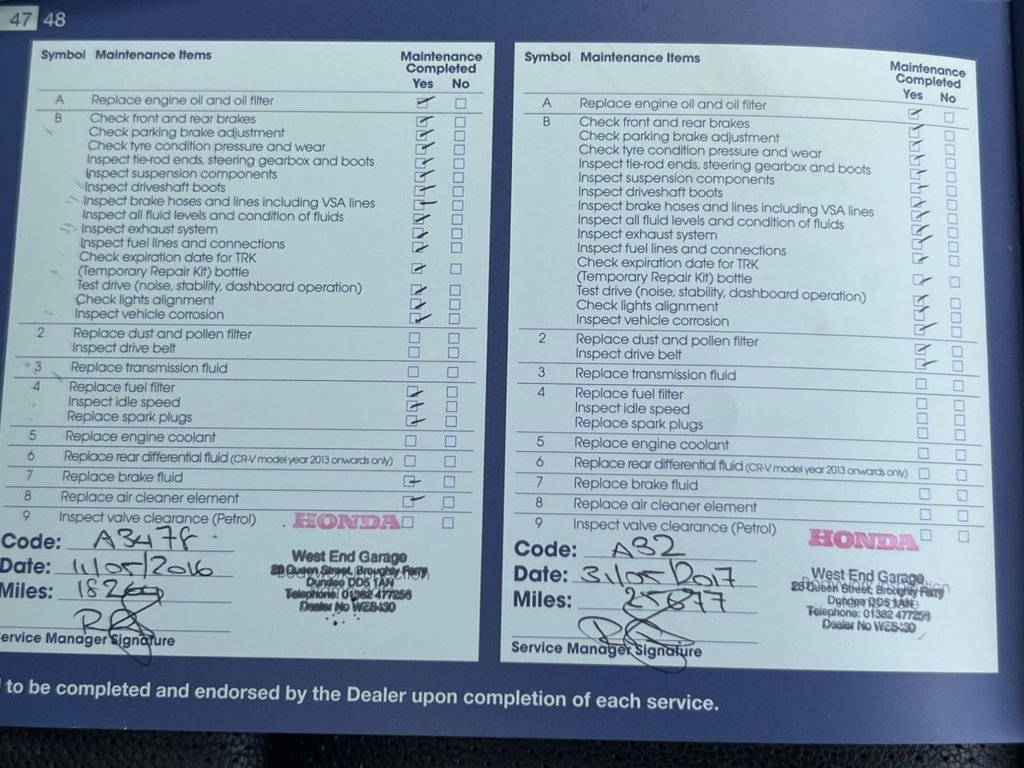 47 48
Symbol Maintenance Items Maintenance Completed
Yes No
A Replace engine oil and oil filter
B Check front and rear brakes
Check parking brake adjustment
Check tyre condition pressure and wear
Inspect tie-rod ends, steering gearbox and boots
Inspect suspension components
Inspect driveshaft boots
Inspect brake hoses and lines including VSA lines
Inspect all fluid levels and condition of fluids
Inspect exhaust system
Inspect fuel lines and connections
Check expiration date for TRK
(Temporary Repair Kit) bottle
Test drive (noise, stability, dashboard operation)
Check lights alignment
Inspect vehicle corrosion
2 Replace dust and pollen filter
Inspect drive belt
3 Replace transmission fluid
4 Replace fuel filter
Inspect idle speed
Replace spark plugs
5 Replace engine coolant
6 Replace rear differential fluid (CR-V model year 2013 onwards only)
7 Replace brake fluid
8 Replace air cleaner element
9 Inspect valve clearance (Petrol)
HONDA
Code: A3478
Date: 11/05/2016
Miles: 18260
West End Garage
28 Queen Street, Broughty Ferry
Dundee DD5 1AN
Telephone: 01382 477256
Dealer No WES430
Service Manager Signature
Symbol Maintenance Items Maintenance Completed
Yes No
A Replace engine oil and oil filter
B Check front and rear brakes
Check parking brake adjustment
Check tyre condition pressure and wear
Inspect tie-rod ends, steering gearbox and boots
Inspect suspension components
Inspect driveshaft boots
Inspect brake hoses and lines including VSA lines
Inspect all fluid levels and condition of fluids
Inspect exhaust system
Inspect fuel lines and connections
Check expiration date for TRK
(Temporary Repair Kit) bottle
Test drive (noise, stability, dashboard operation)
Check lights alignment
Inspect vehicle corrosion
2 Replace dust and pollen filter
Inspect drive belt
3 Replace transmission fluid
4 Replace fuel filter
Inspect idle speed
Replace spark plugs
5 Replace engine coolant
6 Replace rear differential fluid (CR-V model year 2013 onwards only)
7 Replace brake fluid
8 Replace air cleaner element
9 Inspect valve clearance (Petrol)
HONDA
Code: A32
Date: 31/05/2017
Miles: 25677
West End Garage
28 Queen Street, Broughty Ferry
Dundee DD5 1AN
Telephone: 01382 477256
Dealer No WES430
Service Manager Signature
to be completed and endorsed by the Dealer upon completion of each service.